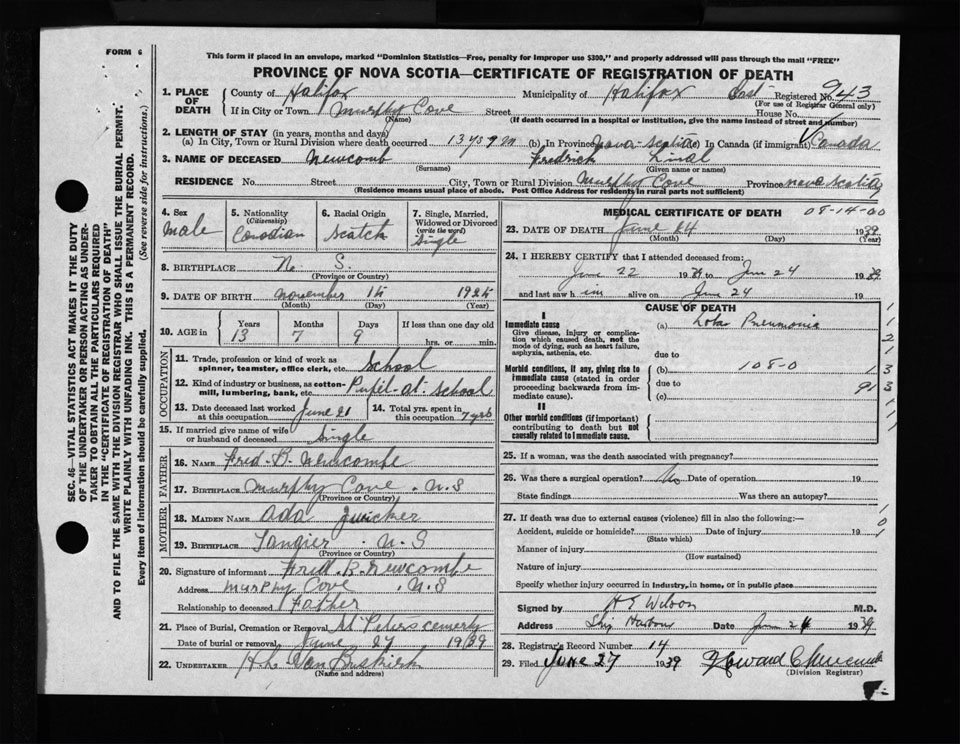 FORM 6
This form if placed in an envelope, marked "Dominion Statistics—Free, penalty for improper use $300," and properly addressed will pass through the mail "FREE"
PROVINCE OF NOVA SCOTIA—CERTIFICATE OF REGISTRATION OF DEATH
SEC. 46—VITAL STATISTICS ACT MAKES IT THE DUTY
OF THE UNDERTAKER OR PERSON ACTING AS UNDER-
TAKER TO OBTAIN ALL THE PARTICULARS REQUIRED
IN THE "CERTIFICATE OF REGISTRATION OF DEATH"
AND TO FILE THE SAME WITH THE DIVISION REGISTRAR WHO SHALL ISSUE THE BURIAL PERMIT.
WRITE PLAINLY WITH UNFADING INK. THIS IS A PERMANENT RECORD.
Every item of information should be carefully supplied. (See reverse side for instructions.)
1. PLACE OF DEATH
County of Halifax Municipality of Halifax East Registered No. 943
(For use of Registrar General only)
If in City or Town Murphy Cove Street House No.
(Name) (If death occurred in a hospital or institution, give the name instead of street and number)
2. LENGTH OF STAY (in years, months and days)
(a) In City, Town or Rural Division where death occurred 13 ys 7 m (b) In Province Nova Scotia (c) In Canada (if immigrant) Canada
3. NAME OF DECEASED Newcomb Fredrick
(Surname) (Given name or names)
RESIDENCE No. Street City, Town or Rural Division Murphy Cove Province Nova Scotia
(Residence means usual place of abode. Post Office Address for residents in rural parts not sufficient)
4. Sex Male
5. Nationality (Citizenship) Canadian
6. Racial Origin Scotch
7. Single, Married, Widowed or Divorced (write the word) Single
8. BIRTHPLACE N. S.
(Province or Country)
9. DATE OF BIRTH November 14 1925
(Month) (Day) (Year)
10. AGE in Years 13 Months 7 Days 9 If less than one day hrs. or min.
OCCUPATION
11. Trade, profession or kind of work as spinner, teamster, office clerk, etc. School
12. Kind of industry or business, as cotton-mill, lumbering, bank, etc. Pupil-at-School
13. Date deceased last worked at this occupation June 21
14. Total yrs. spent in this occupation 7 yrs
15. If married give name of wife or husband of deceased Single
FATHER
16. NAME Fred. B. Newcombe
17. BIRTHPLACE Murphy Cove . N.S
(Province or Country)
MOTHER
18. MAIDEN NAME Ada Zwicker
19. BIRTHPLACE Tangier . N. S
(Province or Country)
20. Signature of informant Fred. B. Newcombe
Address Murphy Cove . N.S
Relationship to deceased Father
21. Place of Burial, Cremation or Removal St Peters cemerty
Date of burial or removal June 27 1939
22. UNDERTAKER H.L. Van Buskirk
(Name and address)
MEDICAL CERTIFICATE OF DEATH 08-14-00
23. DATE OF DEATH June 24 1939
(Month) (Day) (Year)
24. I HEREBY CERTIFY that I attended deceased from:
June 22 1939 to June 24 1939.
and last saw h im alive on June 24 19
CAUSE OF DEATH
I
Immediate cause
Give disease, injury or complication which caused death, not the mode of dying, such as heart failure, asphyxia, asthenia, etc.
(a) Lobar Pneumonia
due to
Morbid conditions, if any, giving rise to immediate cause (stated in order proceeding backwards from immediate cause).
(b) 108-0
due to 91
(c)
II
Other morbid conditions (if important) contributing to death but not causally related to immediate cause.
25. If a woman, was the death associated with pregnancy?
26. Was there a surgical operation? No Date of operation 19
State findings Was there an autopsy?
27. If death was due to external causes (violence) fill in also the following:—
Accident, suicide or homicide? Date of injury 19
(State which)
Manner of injury
(How sustained)
Nature of injury
Specify whether injury occurred in industry, in home, or in public place
Signed by H E Wilson M.D.
Address Ship Harbour Date June 26 1939
28. Registrar's Record Number 14
29. Filed June 27 1939 Howard
(Division Registrar)